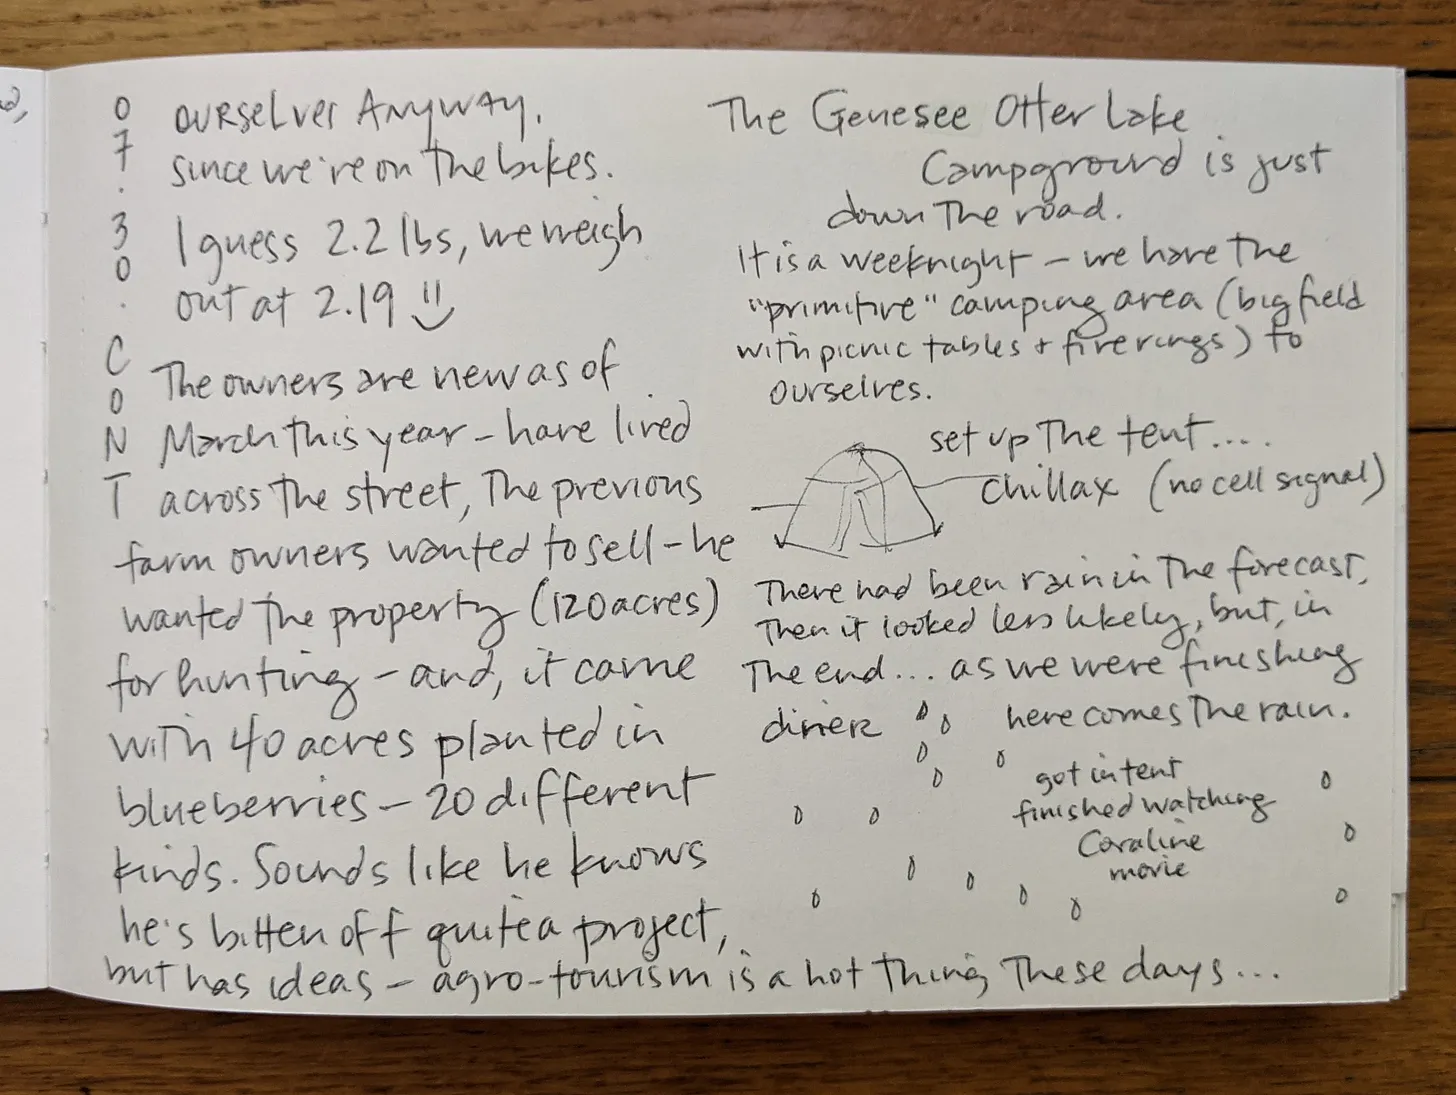 07.30.CONT
ourselves Anyway.
since we're on the bikes.
I guess 2.2 lbs, we weigh
out at 2.19
The owners are new as of
March this year - have lived
across the street, The previous
farm owners wanted to sell - he
wanted the property (120 acres)
for hunting - and, it came
with 40 acres planted in
blueberries - 20 different
kinds. Sounds like he knows
he's bitten off quite a project,
but has ideas - agro-tourism is a hot thing These days...
The Genesee Otter Lake
Campground is just
down The road.
It is a weeknight - we have the
"primitive" camping area (big field
with picnic tables + fire rings) to
ourselves.
set up The tent....
chillax (no cell signal)
There had been rain in The forecast,
Then it looked less likely, but, in
The end... as we were finishing
dinner here comes The rain.
got in tent
finished watching
Coraline
movie